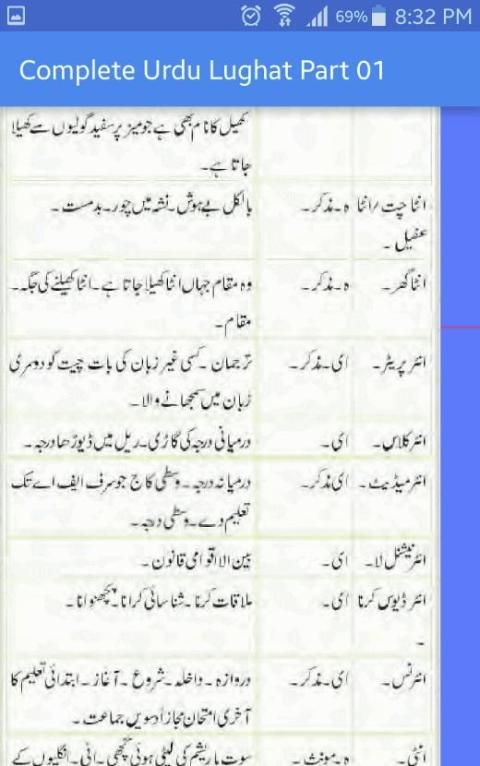 69% 8:32 PM
Complete Urdu Lughat Part 01
کھیل کا نام بھی ہے جو میز پر سفید گولیوں سے کھیلا
جاتا ہے۔
انٹا چت / انٹا ہ۔مذکر۔ بالکل بے ہوش۔ نشہ میں چور۔ بدمست۔
غفیل۔
انٹا گھر۔ ہ۔مذکر۔ وہ مقام جہاں انٹا کھیلا جاتا ہے۔ انٹا کھیلنے کی جگہ۔
مقام۔
انٹر پریٹر۔ ای۔مذکر۔ ترجمان۔ کسی غیر زبان کی بات چیت کو دوسری
زبان میں سمجھانے والا۔
انٹر کلاس۔ ای۔ درمیانی درجہ کی گاڑی۔ ریل میں ڈیوڑھا درجہ۔
انٹر میڈیٹ۔ ای مذکر۔ درمیانہ درجہ۔ وسطی کالج جو صرف ایف اے تک
تعلیم دے۔ وسطی درجہ۔
انٹر نیشنل لا۔ ای۔ بین الاقوامی قانون۔
انٹر ڈیوس کرنا ای۔ ملاقات کرنا۔ شناسائی کرانا۔ پچھنوانا۔
۔
انٹرنس۔ ای۔مذکر۔ دروازہ۔ داخلہ۔ شروع۔ آغاز۔ ابتدائی تعلیم کا
آخری امتحان مجازاً دسویں جماعت۔
انٹی۔ ہ۔مونث۔ سوت یا ریشم کی لپٹی ہوئی لچھی۔ اٹی۔ انگلیوں کے